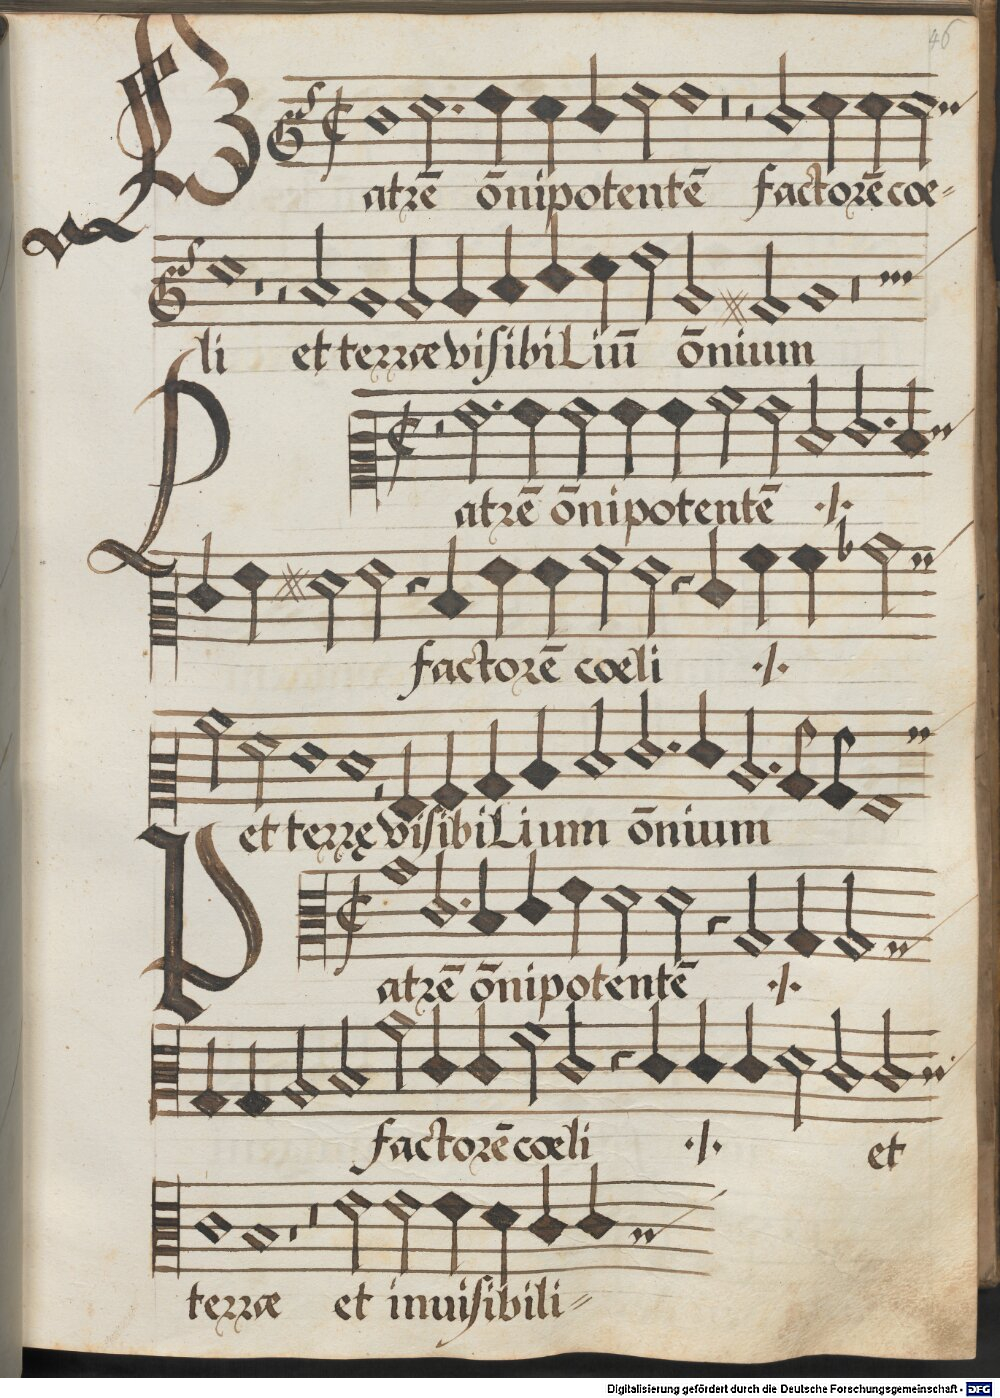 46
Patrē ōnipotentē factorē coe-
li et terrae visibiliū ōnium
Patrē ōnipotentē ./.
factorē coeli ./.
et terrę visibilium ōnium
Patrē ōnipotentē ./.
factorē coeli ./. et
terrae et inuisibili=
Digitalisierung gefördert durch die Deutsche Forschungsgemeinschaft - DFG